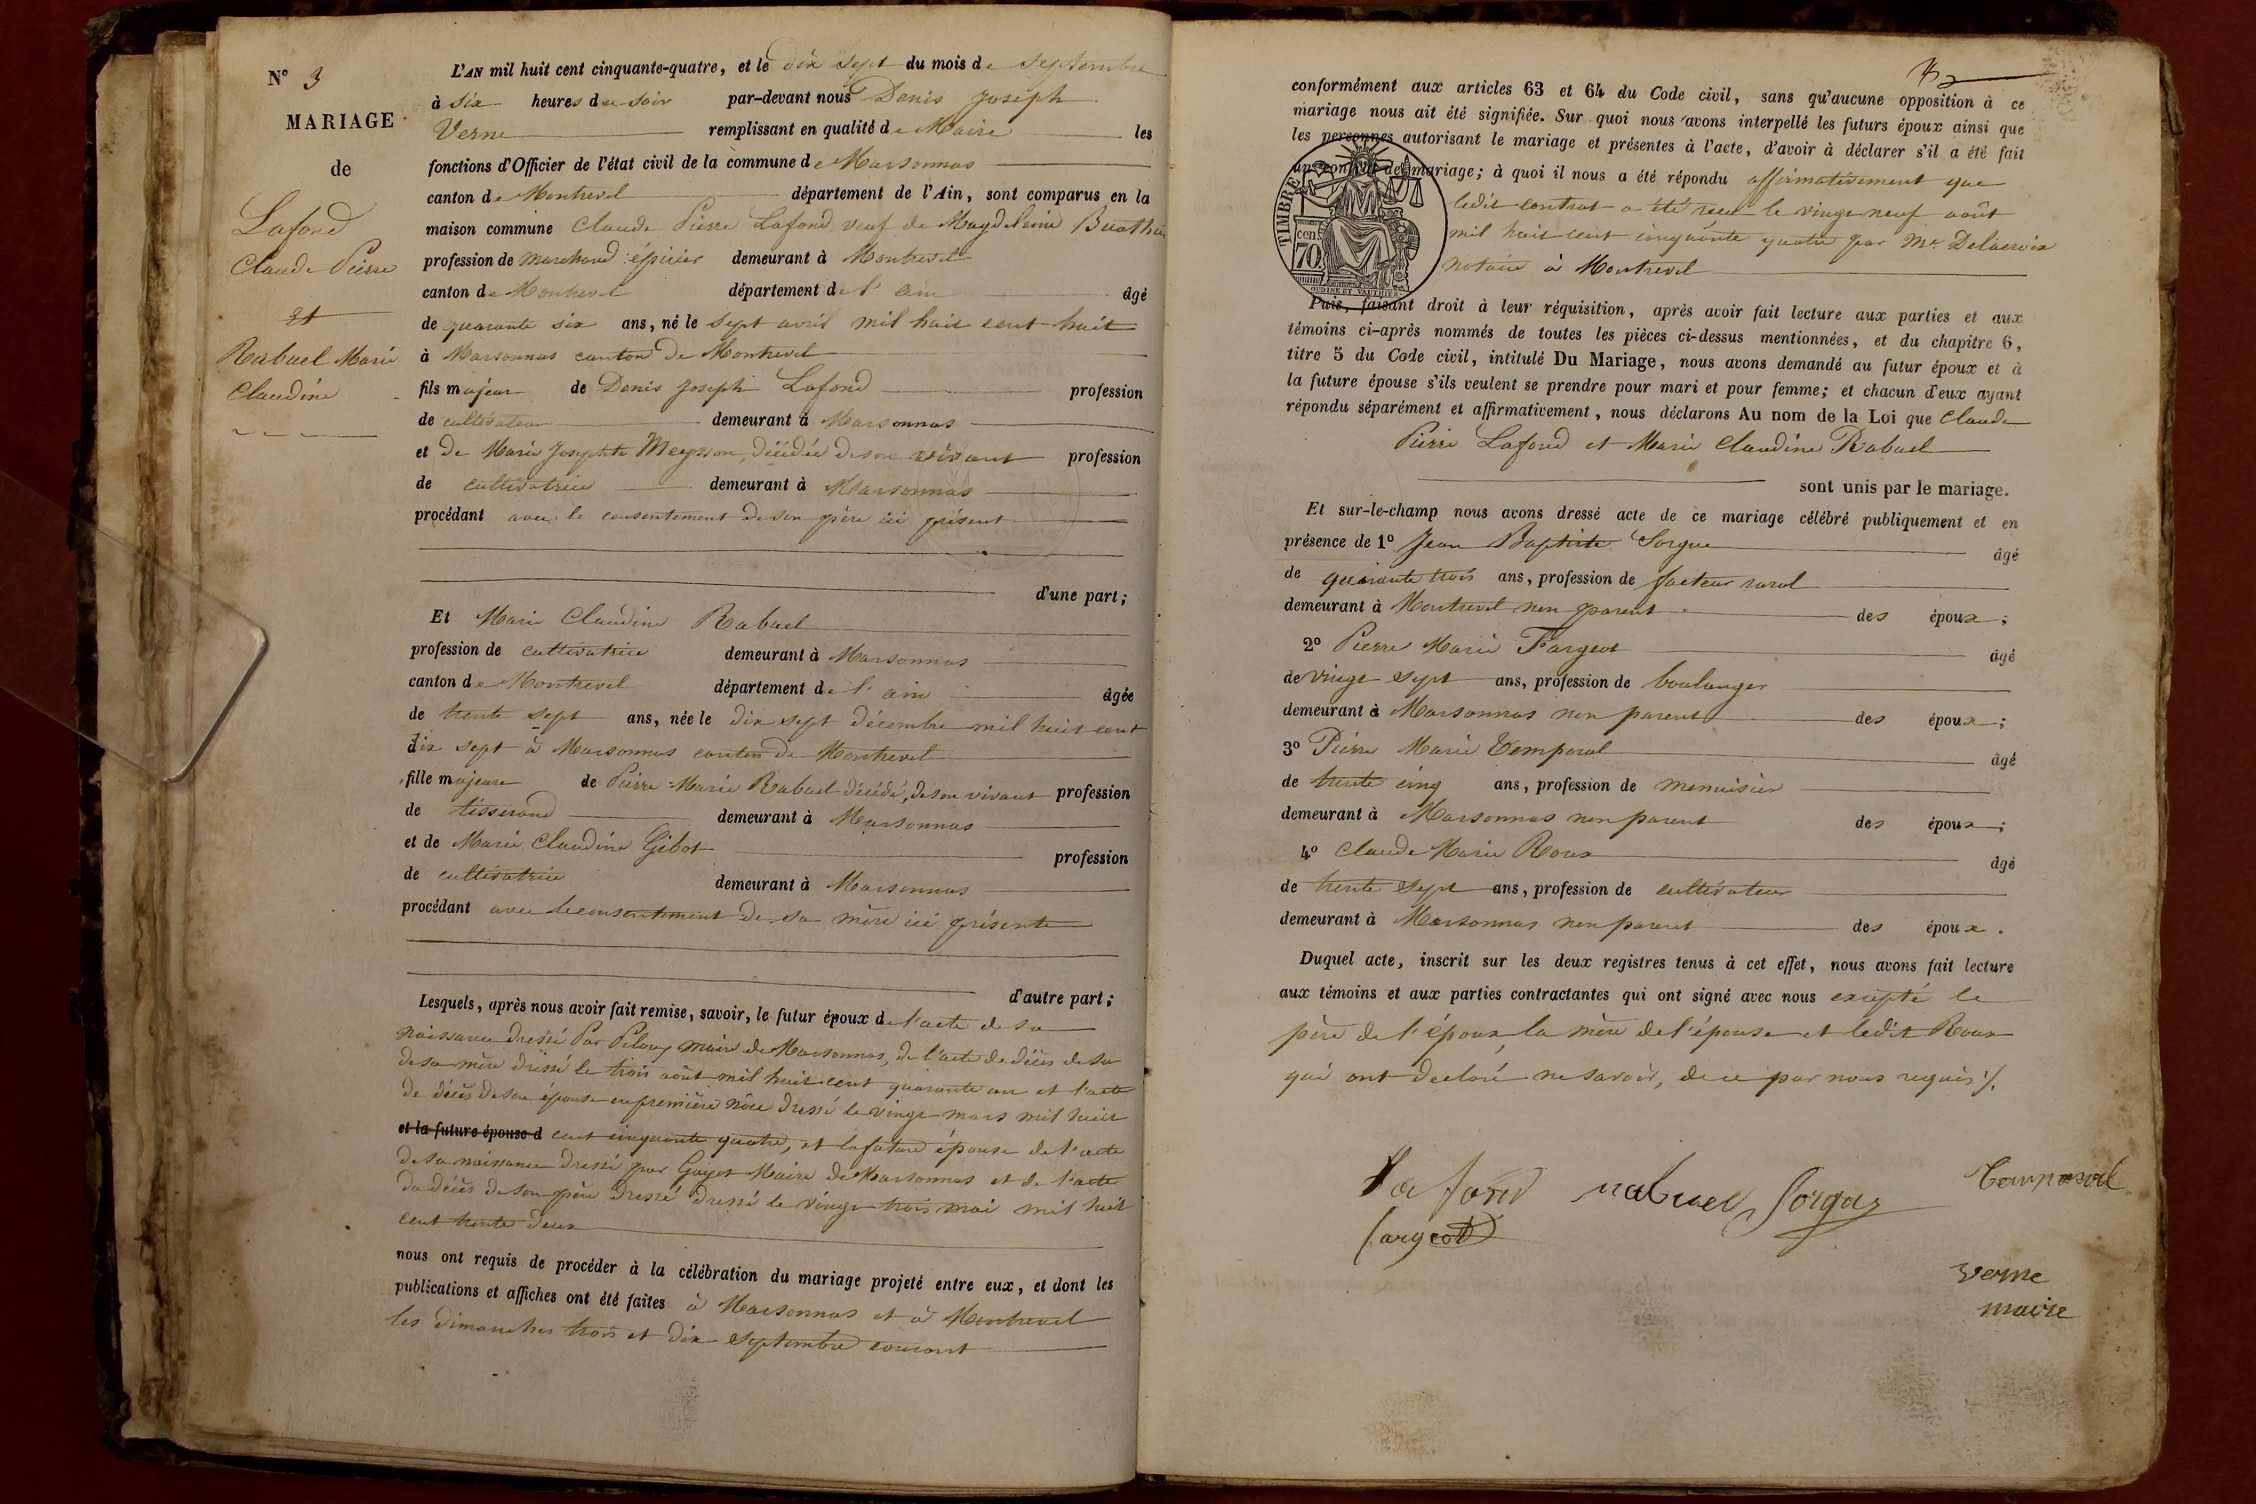 N° 3
MARIAGE
de
Lafond
Claude Pierre
et
Rabuel Marie
Claudine
L'AN mil huit cent cinquante-quatre, et le dix sept du mois de septembre
à six heures du soir par-devant nous Denis Joseph
Verne remplissant en qualité de Maire les
fonctions d'Officier de l'état civil de la commune de Marsonnas
canton de Montrevel département de l'Ain, sont comparus en la
maison commune Claude Pierre Lafond veuf de Magdeleine
profession de marchand épicier demeurant à Montrevel
canton de Montrevel département de l'ain âgé
de quarante six ans, né le sept avril mil huit cent huit
à Marsonnas canton de Montrevel
fils majeur de Denis Joseph Lafond profession
de cultivateur demeurant à Marsonnas
et de Marie Josephte Meysson, décédée de son vivant profession
de cultivatrice demeurant à Marsonnas
procédant avec le consentement de son père ici présent
d'une part;
Et Marie Claudine Rabuel
profession de cultivatrice demeurant à Marsonnas
canton de Montrevel département de l'ain âgée
de trente sept ans, née le dix sept décembre mil huit cent
dix sept à Marsonnas canton de Montrevel
fille majeure de Pierre Marie Rabuel décédé, de son vivant profession
de tisserand demeurant à Marsonnas
et de Marie Claudine Gibot profession
de cultivatrice demeurant à Marsonnas
procédant avec le consentement de sa mère ici présente
d'autre part;
Lesquels, après nous avoir fait remise, savoir, le futur époux de l'acte de sa
naissance dressé Par maire de Marsonnas, de l'acte de décès de sa
de sa mère dressé le trois août mil huit cent quarante un et l'acte
de décès de son épouse en première nôce dressé le vingt mars mil huit
et la future épouse d cent cinquante quatre, et la future épouse de l'acte
de sa naissance dressé par Guyot Maire de Marsonnas et de l'acte
du décès de son père dressé dressé le vingt trois mai mil huit
cent trente deux
nous ont requis de procéder à la célébration du mariage projeté entre eux, et dont les
publications et affiches ont été faites à Marsonnas et à Montrevel
les dimanches trois et dix septembre courant
conformément aux articles 63 et 64 du Code civil, sans qu'aucune opposition à ce
mariage nous ait été signifiée. Sur quoi nous avons interpellé les futurs époux ainsi que
les personnes autorisant le mariage et présentes à l'acte, d'avoir à déclarer s'il a été fait
un contrat de mariage; à quoi il nous a été répondu affirmativement que
ledit contrat a été reçu le vingt neuf août
mil huit cent cinquante quatre par Me Delacroix
notaire à Montrevel
TIMBRE
cen.
70
OUDINE ET VAUTHIER
Puis, faisant droit à leur réquisition, après avoir fait lecture aux parties et aux
témoins ci-après nommés de toutes les pièces ci-dessus mentionnées, et du chapitre 6,
titre 5 du Code civil, intitulé Du Mariage, nous avons demandé au futur époux et à
la future épouse s'ils veulent se prendre pour mari et pour femme; et chacun d'eux ayant
répondu séparément et affirmativement, nous déclarons Au nom de la Loi que Claude
Pierre Lafond et Marie Claudine Rabuel
sont unis par le mariage.
Et sur-le-champ nous avons dressé acte de ce mariage célébré publiquement et en
présence de 1° Jean Baptiste Sorgue âgé
de quarante trois ans, profession de facteur rural
demeurant à Montrevel non parent des époux;
2° Pierre Marie Fargeot âgé
de vingt sept ans, profession de boulanger
demeurant à Marsonnas non parent des époux;
3° Pierre Marie Temporal âgé
de trente cinq ans, profession de menuisier
demeurant à Marsonnas non parent des époux;
4° Claude Marie Roux âgé
de trente sept ans, profession de cultivateur
demeurant à Marsonnas non parent des époux.
Duquel acte, inscrit sur les deux registres tenus à cet effet, nous avons fait lecture
aux témoins et aux parties contractantes qui ont signé avec nous excepté le
père de l'époux, la mère de l'épouse et ledit Roux
qui ont declaré ne savoir, de ce par nous requis ./.
Lafond rabuel Sorgue Temporal
fargeot
verne
maire